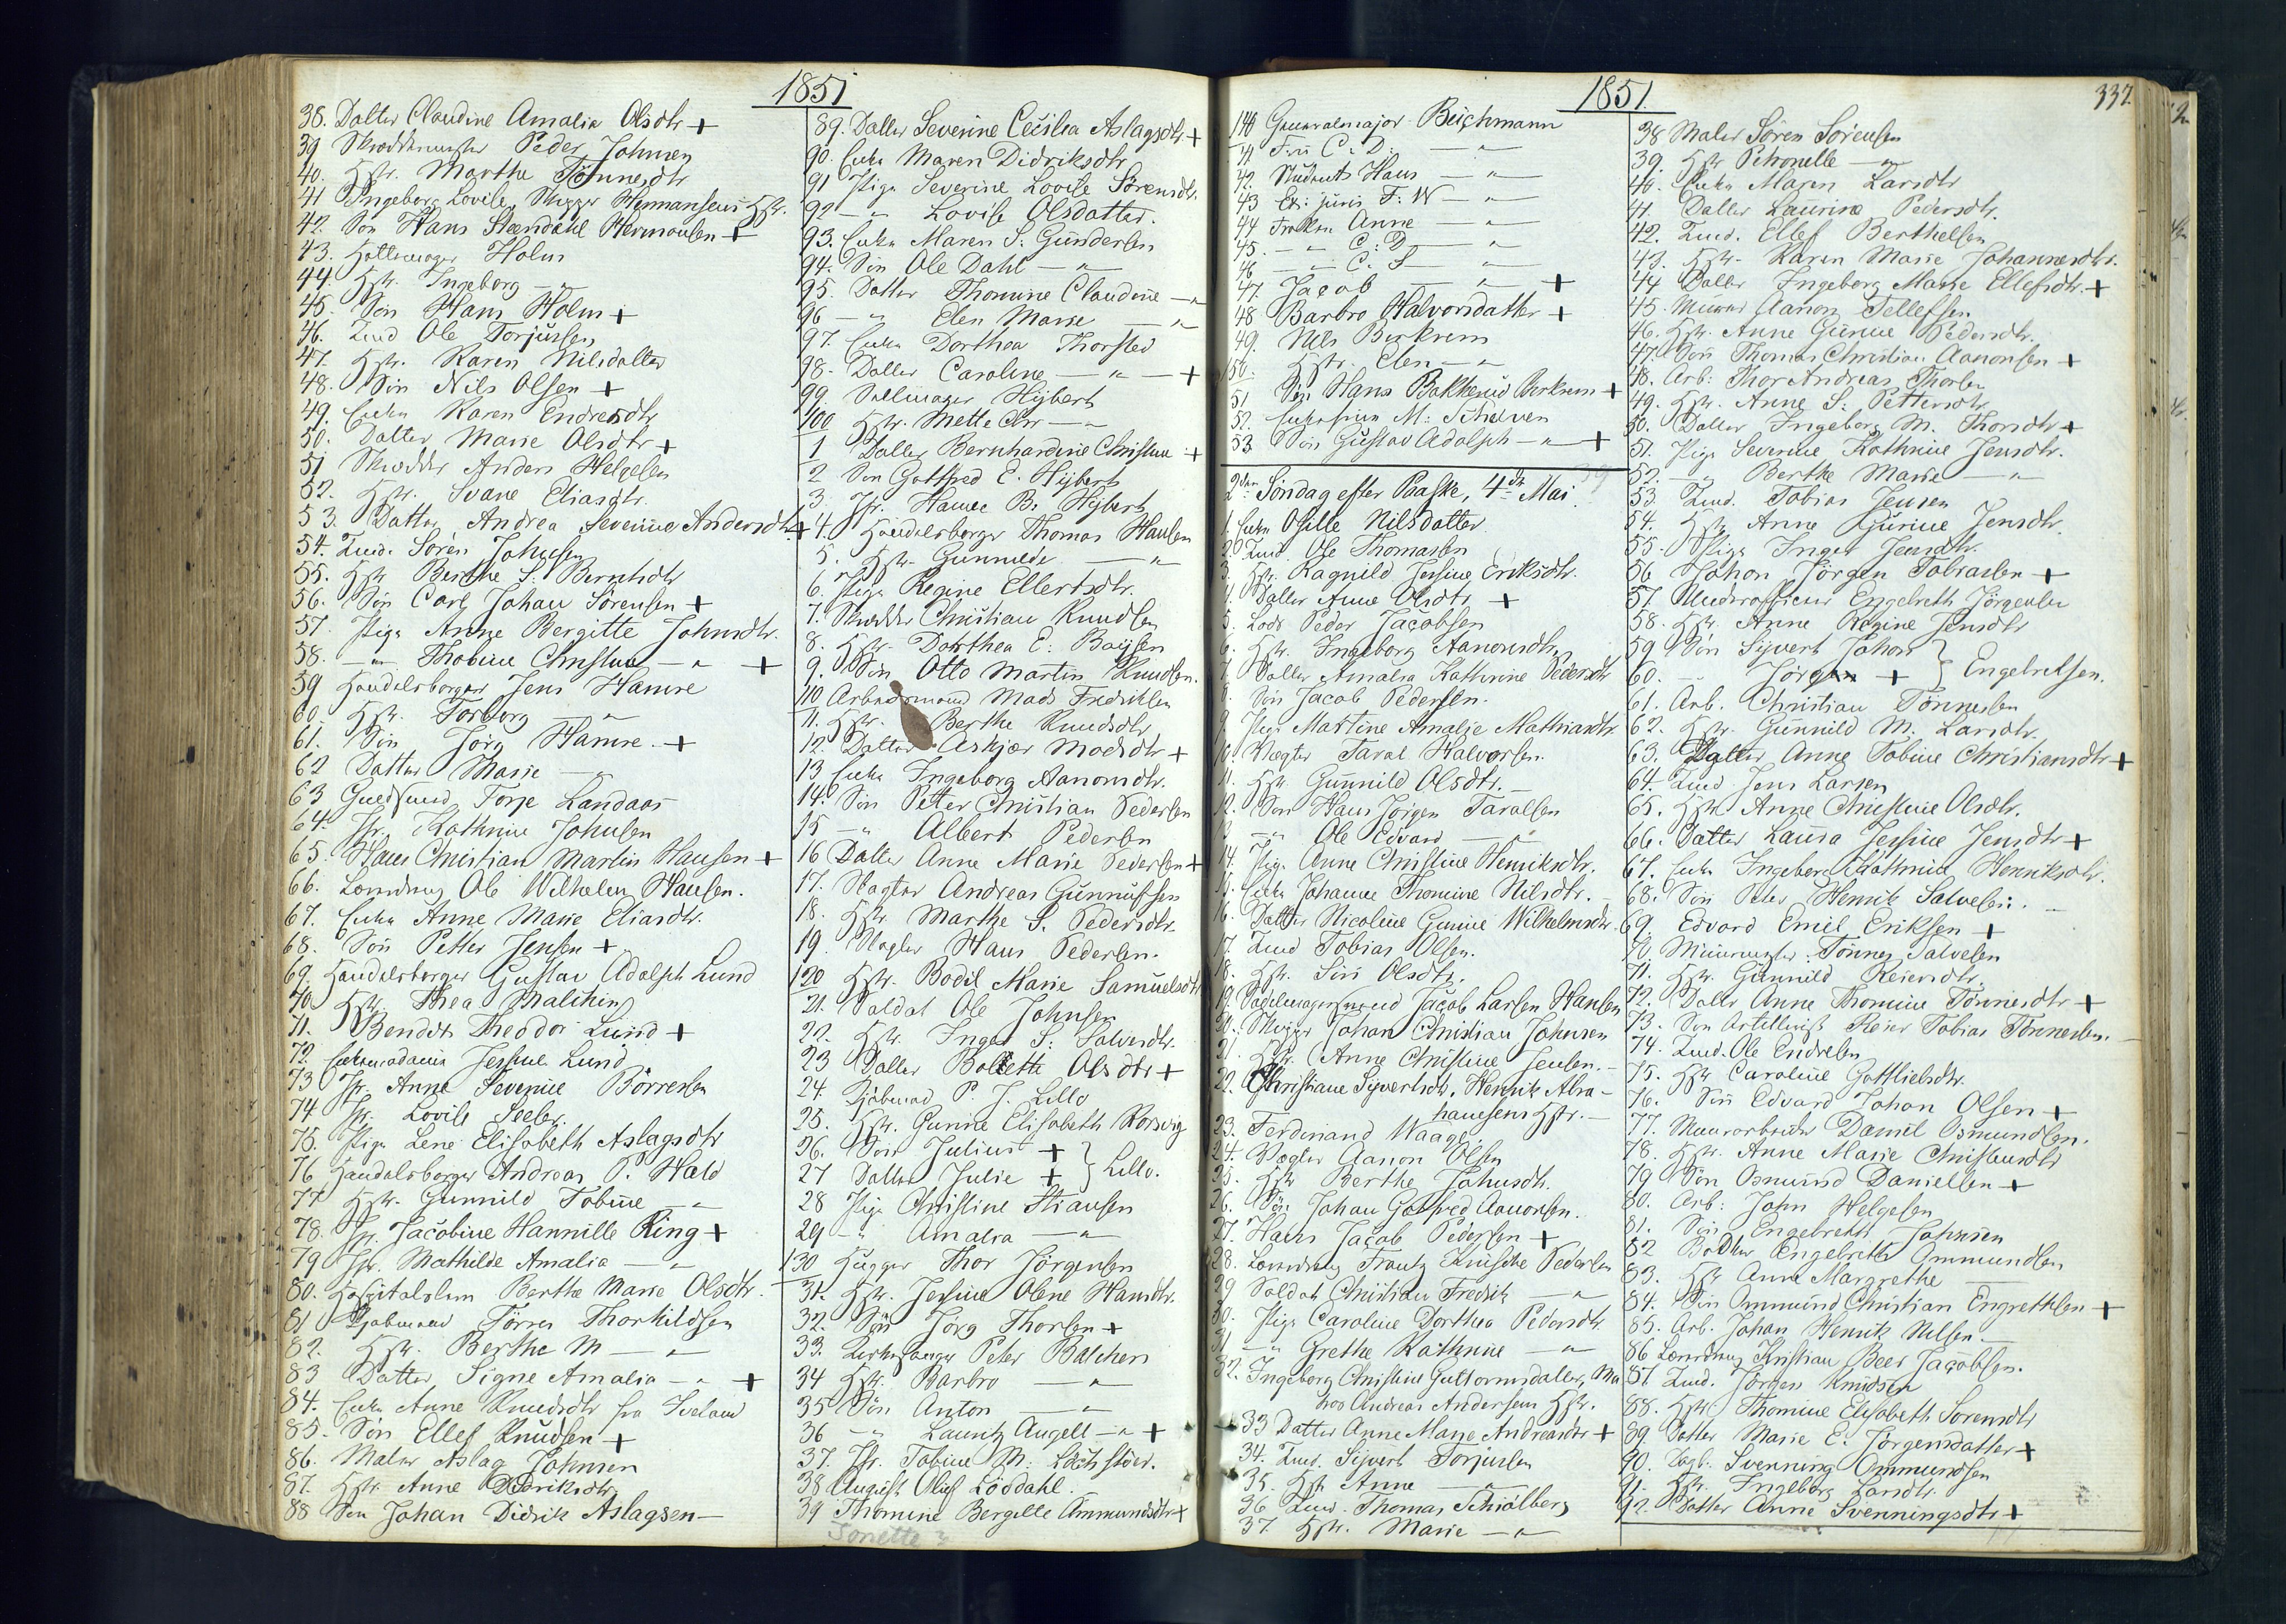 1851
38. Datter Claudine Amalia Olsdtr +
39 Skræddermester Peder Johnsen
40. Hstr. Marthe Tönnesdtr
41 Ingeborg Lovise, Skipper Hermansens Hstr.
42. Sön Hans Steendahl Hermansen +
43. Hattemager Holm
44. Hstr. Ingeborg —"—
45. Sön Hans Holm +
46. Tmd Ole Torjusen
47. Hstr. Karen Nilsdatter
48. Sön Nils Olsen +
49. Enke Karen Endresdtr
50. Datter Marie Olsdtr +
51 Skrædder Anders Helgesen
52. Hstr. Svane Eliasdtr.
53. Datter Andrea Severine Andersdtr +
54. Tmd. Sören Johnsen
55. Hstr Berthe S. Berntsdtr
56. Sön Carl Johan Sörensen +
57. Pige Anne Bergitte Johnsdtr.
58. —"— Thobine Christine —"— +
59 Handelsborger Jens Hamre
60. Hstr. Torborg —"—
61. Sön Jörg Hamre. +
62 Datter Marie —"—
63 Guldsmed Torje Landaas
64. Jfr. Kathrine Johnsen
65. Hans Christian Martin Hansen +
66. Læredreng Ole Wilhelm Hansen.
67. Enke Anne Marie Eliasdtr.
68. Sön Petter Jensen +
69. Handelsborger Gustav Adolph Lund
70. Hstr. Thea Malthing
71. Bendit Theodor Lund +
72. Enkemadame Jessine Lund
73 Jfr. Anne Severine Börresen
74. Jfr. Lovise Seeber
75. Pige Lene Elisabeth Aslagsdtr
76 Handelsborger Andreas P. Hald
77 Hstr. Gunnild Tobine —"—
78. Jfr. Jacobine Hannille Ring +
79 Jfr. Mathilde Amalia —"—
80. Hospitalslem Berthe Marie Olsdtr.
81 Kjöbmand Törres Thorkildsen
82. Hstr. Berthe M —"—
83 Datter Signe Amalia —"— +
84. Enke Anne Knudsdtr fra Iveland
85. Sön Ellef Knudsen +
86. Maler Aslag Johnsen
87. Hstr. Anne Didriksdtr
88 Sön Johan Didrik Aslagsen —
89. Datter Severine Cecilia Aslagsdtr +
90. Enke Maren Didriksdtr
91 Pige Severine Lovise Sörensdtr.
92 —"— Lovise Olsdatter.
93. Enke Maren S. Gundersen
94. Sön Ole Dahl —"—
95. Datter Thomine Claudine —"—
96 —"— Elen Marie —"—
97. Enke Dorthea Thorsted
98. Datter Caroline —"— +
99. Sadlmager Hijbert
100 Hstr. Mette Chr —"—
1 Datter Bernhardine Christine +
2 Sön Gottfred E. Hijbert
3. Jfr. Hanne B: Hijbert
4. Handelsborger Thomas Hansen
5. Hstr. Gunnild —"—
6. Pige Regine Ellertsdtr.
7. Skrædder Christian Knudsen
8. Hstr. Dorthea E. Boysen
9. Sön Otto Martin Knudsen.
110 Arbeidsmand Mads Fredriksen
11. Hstr. Berthe Knudsdtr
12. Datter Askjær Madsdtr +
13 Enke Ingeborg Aanonsdtr.
14. Sön Petter Christian Pedersen
15 —"— Albert Pedersen
16 Datter Anne Marie Pedersen +
17. Slagter Andreas Gunnufsen
18. Hstr. Marthe S. Pedersdtr.
19. Slagter Hans Pedersen.
120 Hstr. Bodil Marie Samuelsdtr
21. Soldat Ole Johnsen
22. Hstr. Inger S: Salvesdtr.
23 Datter Bollette Olsdtr +
24. Kjöbmand P. J. Lillo
25. Hstr. Gunine Elisabeth Korsvig
26. Sön Julius +
27 Datter Julie + } Lillo.
28 Pige Christine Hansen
29 —"— Amalia —"—
130 Hugger Thor Jörgensen
31. Hstr. Jessine Olene Hansdtr.
32. Sön Jörg Thorsen +
33. Kirkesanger Peter Balchen
34 Hstr. Barbro —"—
35 Sön Anton —"—
36 —"— Lauritz Angell —"— +
37. Jfr. Tobine M:
38 August Oluf Löddahl.
39 Thomine Bergitte Ommundsdtr +
Sonette?
1851
337
140 Generalmajor Beichmann
41 Fru C. D: —"—
42. Student Hans —"—
43 Ex: juris F. W —"—
44 Fröken Anne —"—
45. —"— C: D —"—
46 —"— C. S —"—
47. Jacob —"— +
48 Barbro Halvorsdatter +
49. Nils Birkrem
150. Hstr. Elen —"—
51 Sön Hans Bakkerud Birkrem +
52. Enkefrue M: Schelven
53 Sön Gustav Adolph —"— +
2den Söndag efter Paaske, 4de Mai.
1. Enke Oselle Nilsdatter
2. Tmd. Ole Thomassen
3. Hstr. Ragnild Jessine Eriksdtr.
4. Datter Anne Olsdtr +
5. Lods Peder Jacobsen
6. Hstr. Ingeborg Aanonsdtr
7. Datter Amalia Kathrine Pedersdtr
8. Sön Jacob Pedersen.
9. Pige Martine Amalie Mathiasdtr
10. Vægter Taral Halvorsen.
11. Hstr Gunnild Olsdtr. —
12. Sön Hans Jörgen Taralsen
13. —"— Ole Edvard —"—
14. Pige Anne Christine Henriksdtr.
15. Enke Johanne Thomine Nilsdtr. —
16. Datter Nicoline Gunine Wilhelmsdtr.
17. Tmd Tobias Olsen.
18. Hstr. Siri Olsdtr.
19. Sadelmagersvend Jacob Larsen Hansen
20. Skipper Johan Christian Johnsen
21. Hstr. Anne Christine Jensen. —
22. Christiane Sijvertsdtr. Henrik Abra-
hamsens Hstr. —
23. Ferdinand Waage.
24. Vægter Aanon Olsen
25. Hstr Berthe Johnsdtr.
26. Sön Johan Gotfred Aanonsen.
27. Hans Jacob Pedersen +
28. Læredreng Frantz Knische Pedersen
29 Soldat Christian Fredrik —"—
30. Pige Caroline Dorthea Pedersdtr
31 —"— Grethe Kathrine —"—
32. Ingeborg Christine Guttormsdatter, Ma
tros Andreas Andersens Hstr.
33 Datter Anne Marie Andreasdtr +
34. Tmd. Sijvert Torjusen
35. Hstr Anne —"—
36 Tmd. Thomas Schiölberg
37. Hstr. Marie —"—
38 Maler Sören Sörensen
39. Hstr Petronelle —"—
40. Enke Maren Larsdtr
41. Datter Laurine Pedersdtr.
42. Tmd. Ellef Berthelsen
43. Hstr. Karen Marie Johannesdtr.
44 Datter Ingeborg Marie Ellefsdtr. +
45. Murer Aanon Tellefsen
46. Hstr. Anne Gurine Pedersdtr.
47. Sön Thomas Christian Aanonsen +
48. Arb: Thor Andreas Thorsen
49. Hstr. Anne S: Pettersdtr
50. Datter Ingeborg M. Thorsdtr +
51. Pige Severine Kathrine Jensdtr.
52. —"— Berthe Marie —"—
53 Tmd. Tobias Jensen
54. Hstr Anne Gurine Jensdtr.
55. Pige Inger Jensdtr.
56 Johan Jörgen Tobiassen +
57. Underofficer Engelreth Jörgensen
58. Hstr. Anne Regine Jensdtr
59 Sön Sijvert Johan
60. —"— Jörgen + } Engelretsen.
61. Arb. Christian Tönnesen
62. Hstr. Gunnild M. Larsdtr.
63. Datter Anne Tobine Christiansdtr +
64. Tmd Jens Larsen
65. Hstr Anne Christine Olsdtr.
66. Datter Laura Jessine Jensdtr +
67. Enke Ingeborg Kathrine Henriksdtr.
68. Sön Peter Henrik Salvesen. —
69. Edvard Emil Eriksen +
70. Muurmester Tönnes Salvesen
71. Hstr. Gunnild Reiersdtr.
72. Datter Anne Thomine Tönnesdtr +
73. Sön Artillerist Reier Tobias Tönnesen. —
74. Tmd. Ole Endresen
75. Hstr Caroline Gottliebsdtr.
76. Sön Edvard Johan Olsen +
77. Muurarbeider Daniel Osmundsen.
78. Hstr. Anne Marie Christensdtr
79 Sön Osmund Danielsen +
80. Arb: John Helgesen
81. Sön Engebreth Johnsen
82 Bödker Engelreth Ommundsen
83. Hstr Anne Margrethe —
84. Sön Ommund Christian Engrethsen +
85. Arb. Johan Henrik Nilsen. —
86 Læredreng Kristian Beer Jacobsen.
87. Tmd. Jörgen Knudsen
88. Hstr Thomine Elisabeth Sorensdtr
89 Datter Marie E. Jörgensdatter +
90. Svenning Ommundsen
91. Hstr. Ingeborg Larsdtr.
92. Datter Anne Svenningsdtr +